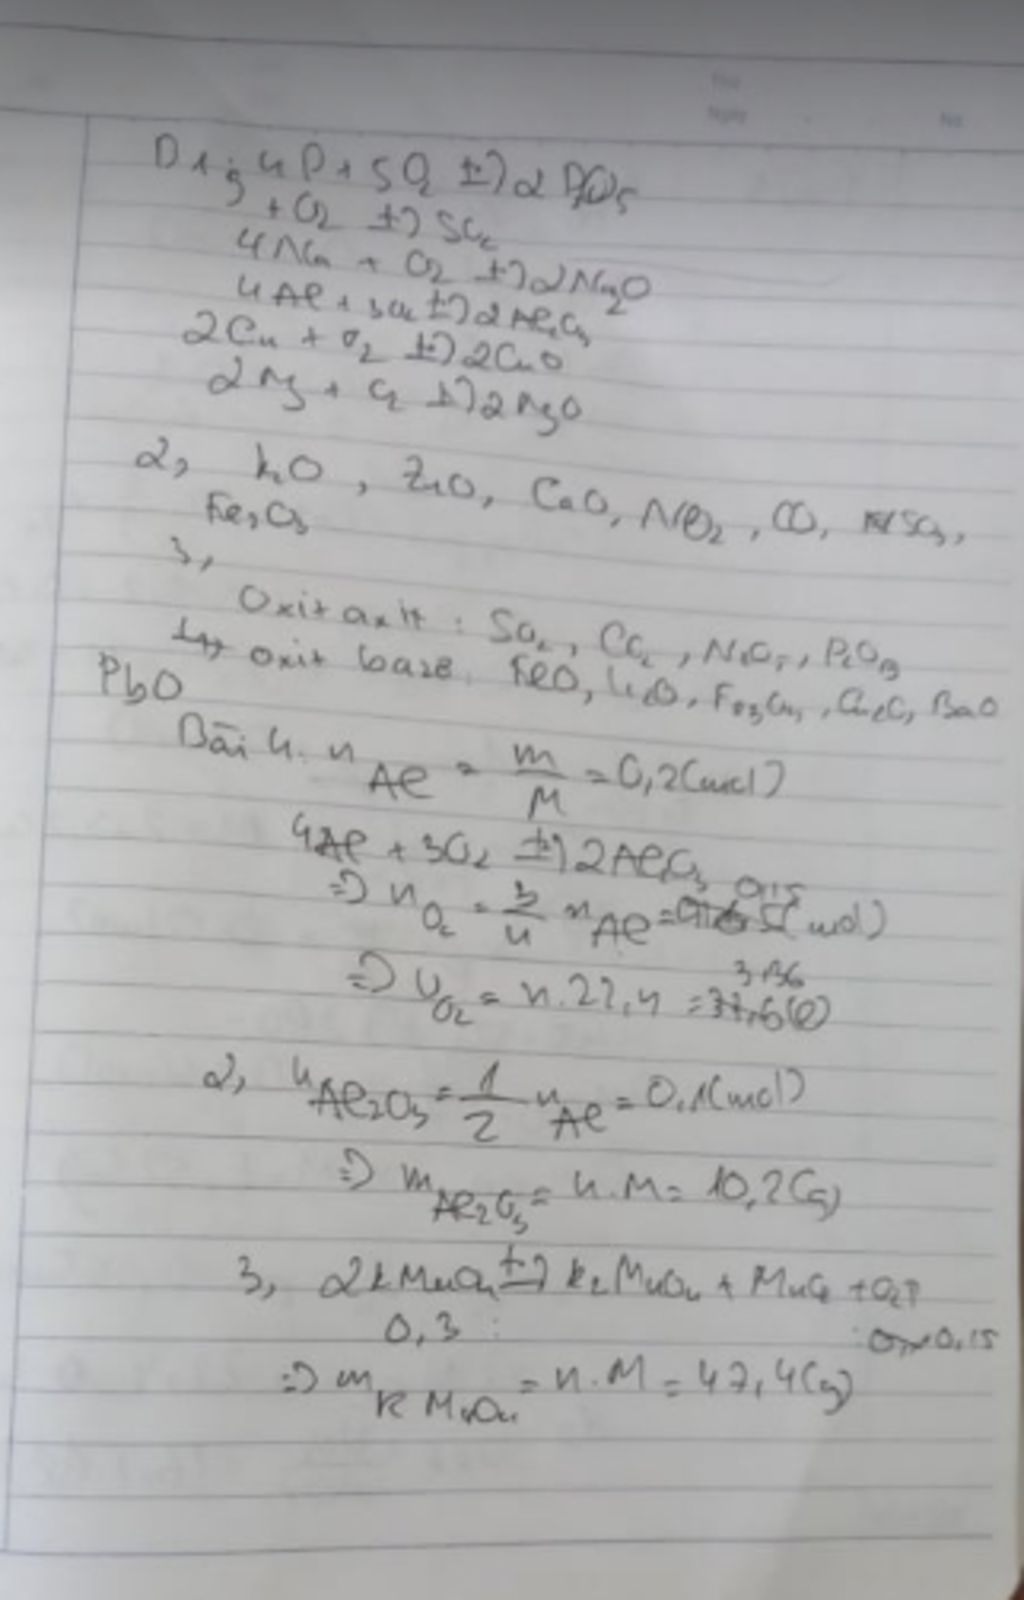 4P + 5O2 t→ 2P2O5
S + O2 t→ SO2
4Na + O2 t→ 2Na2O
4Al + 3O2 t→ 2Al2O3
2Cu + O2 t→ 2CuO
2Mg + O2 t→ 2MgO
2, K2O, ZnO, CaO, NO2, CO, SO3,
Fe2O3
3,
Oxit axit : SO2, CO2, N2O5, P2O5
oxit base. FeO, Li2O, Fe2O3, Cu2O, BaO
PbO
Bài 4. nAl = m/M = 0,2(mol)
4Al + 3O2 t→ 2Al2O3
=> nO2 = 3/4 nAl = 0,15 (mol)
=> VO2 = n.22,4 = 3,36 (l)
2, nAl2O3 = 1/2 nAl = 0,1(mol)
=> mAl2O3 = n.M = 10,2(g)
3, 2KMnO4 t→ K2MnO4 + MnO2 + O2↑
0,3 : 0,15
=> mKMnO4 = n.M = 47,4(g)